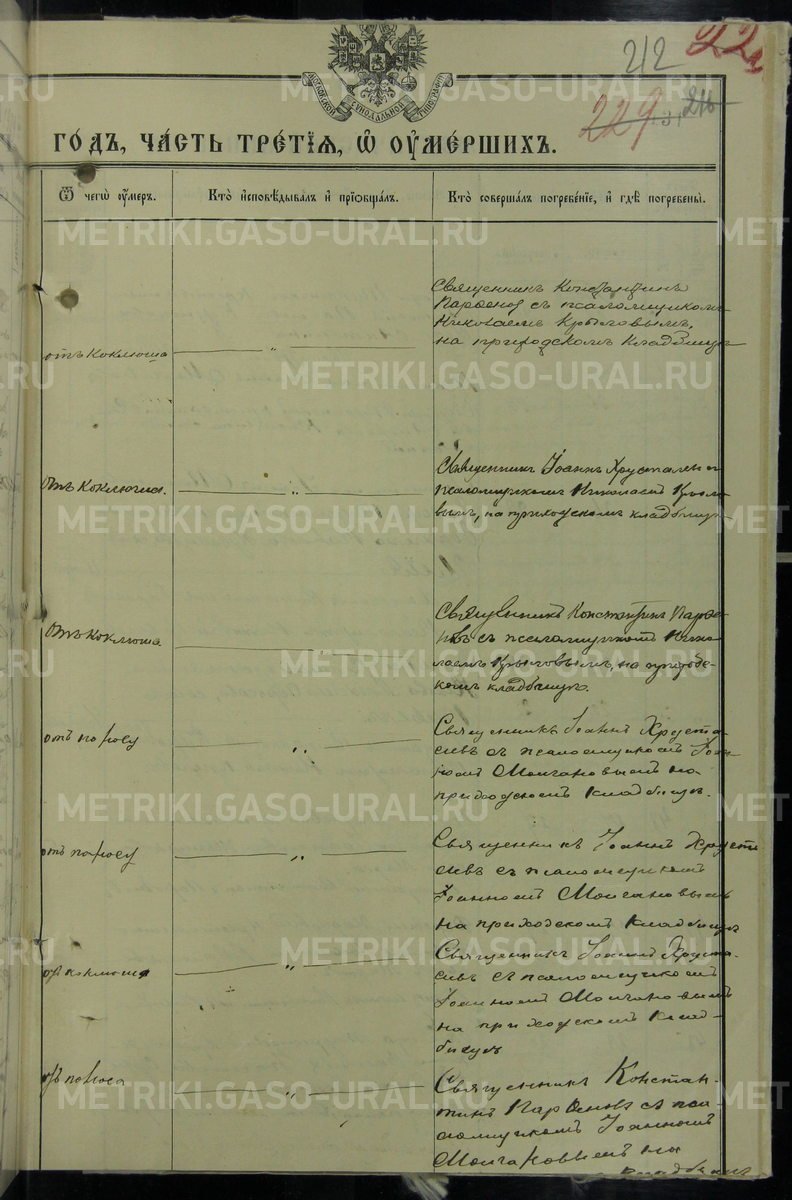 212
229
ГО́ДЪ, ЧА́СТЬ ТРЕ́ТІѦ, Ѡ҆ ОУ҆МЕ́РШИХЪ.
Ѿ чегѡ̀ оу҆́меръ.
Кто̀ и҆сповѣ́дывалъ и҆ прїѡбща́лъ.
Кто̀ соверша́лъ погребе́нїе, и҆ гдѣ̀ погребены̀.
отъ коклюша
Священникъ Константинъ
Парѳенов съ псаломщикомъ
Николаемъ Крыловымъ,
на приходскомъ кладбищѣ
Отъ коклюша.
Священникъ Іоаннъ Хрусталев съ
псаломщикомъ Николаемъ Крыло-
вымъ, на приходскомъ кладбищѣ
Отъ коклюша.
Священникъ Константинъ Парѳе-
новъ съ псаломщикомъ Нико-
лаемъ Крыловымъ, на приход-
скомъ кладбищѣ.
отъ поносу
Священникъ Іоаннъ Хруста-
левъ съ псаломщикомъ Іоан-
номъ Молчановымъ на
приходскомъ кладбищѣ.
отъ поносу
Священникъ Іоаннъ Хруста
левъ съ псаломщикомъ
Іоанномъ Молчановымъ
на приходскомъ кладбищѣ
от коклюша
Священникъ Іоаннъ Хруста-
левъ съ псаломщикомъ
Іоанномъ Молчановымъ
на приходскомъ клад-
бищѣ
отъ поноса
Священникъ Констан-
тинъ Парѳеновъ съ пса-
ломщикомъ Іоанномъ
Молчановымъ на
кладбищѣ
METRIKI.GASO-URAL.RU